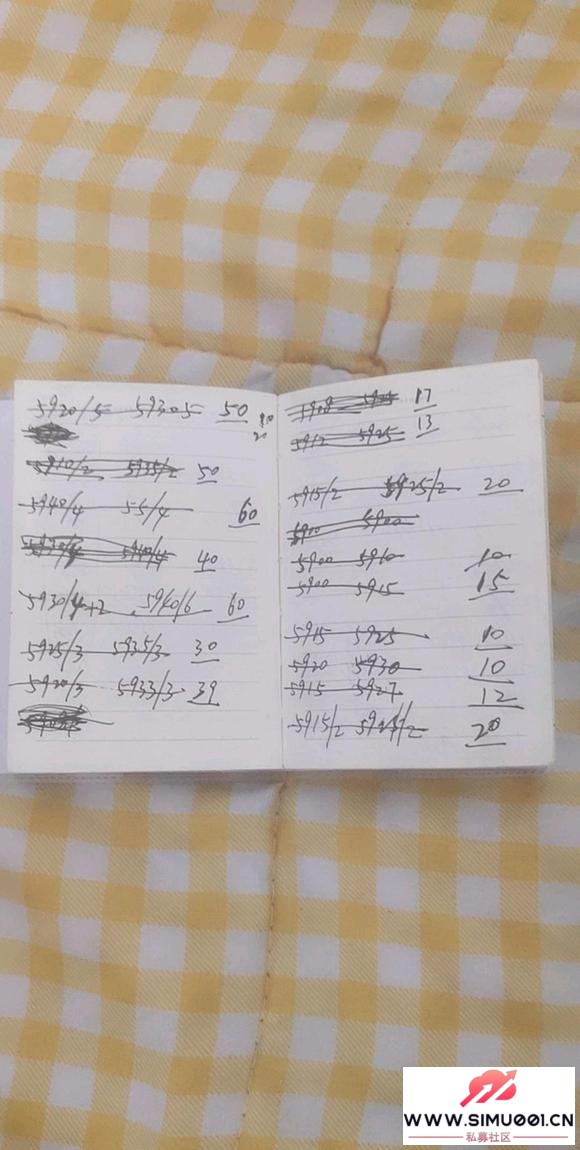 5920/5 5930/5 50
5910/2 5935/2 50
5940/4 55/4 60
40
5930/4+2 5940/6 60
5925/3 5935/3 30
5920/3 5933/3 39
17
5912 5925 13
5915/2 5925/2 20
5900 5900
5900 5910 10
5900 5915 15
5915 5925 10
5920 5930 10
5915 5927 12
5915/2 5925/2 20
WWW.SIMU001.CN
私募社区